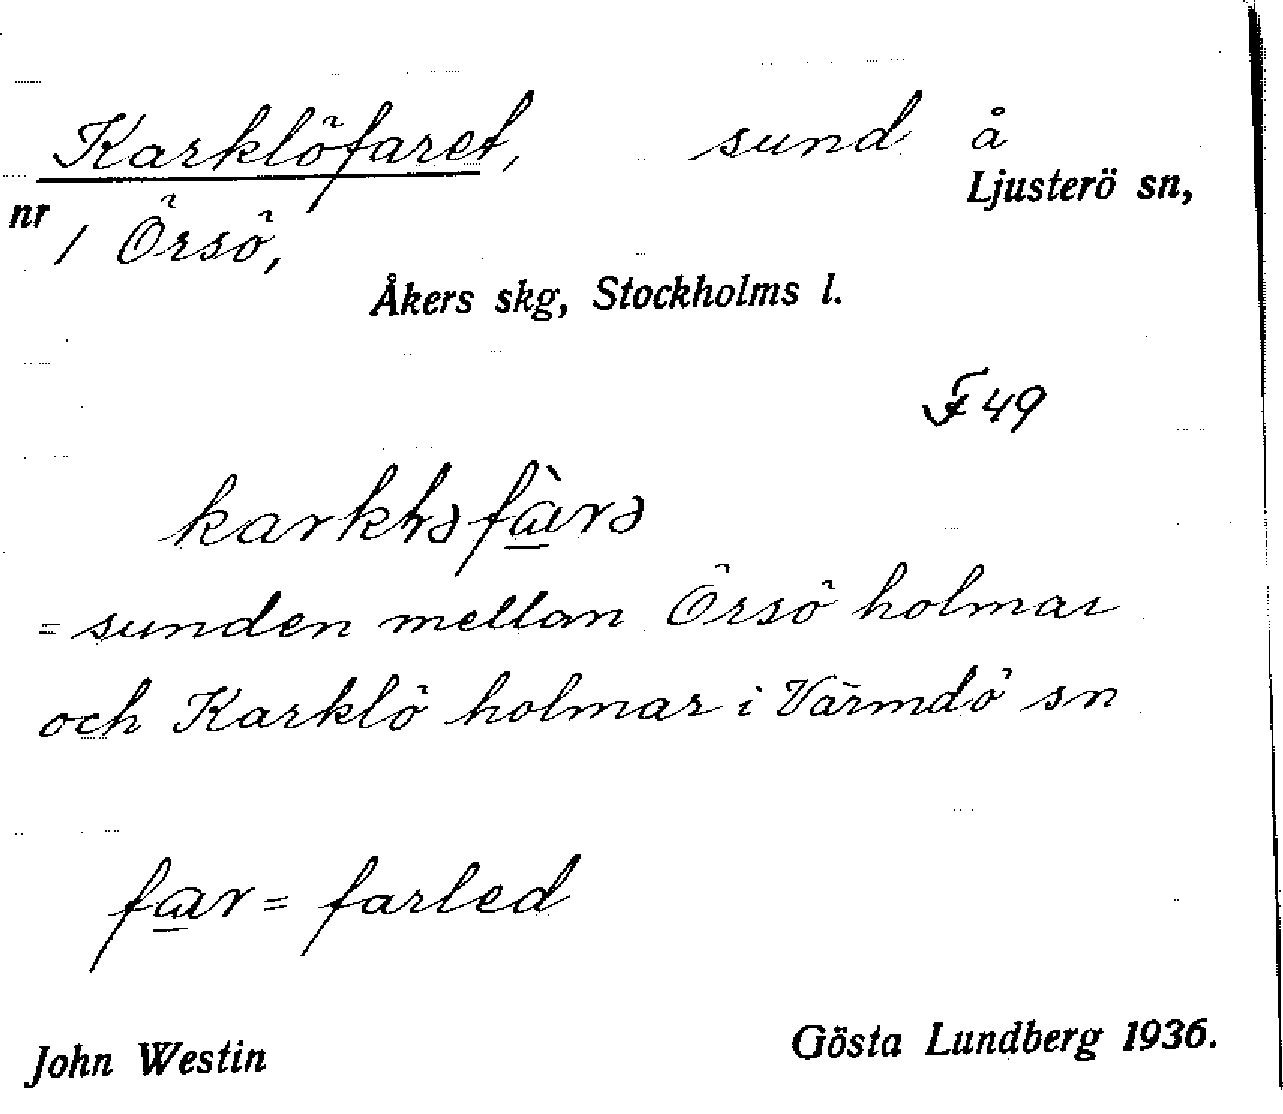 Karklöfaret, sund å
Ljusterö sn,
nr 1 Örsö,
Åkers skg, Stockholms l.
F 49
= sunden mellan Örsö holmar
och Karklö holmar i Värmdö sn
far = farled
John Westin Gösta Lundberg 1936.